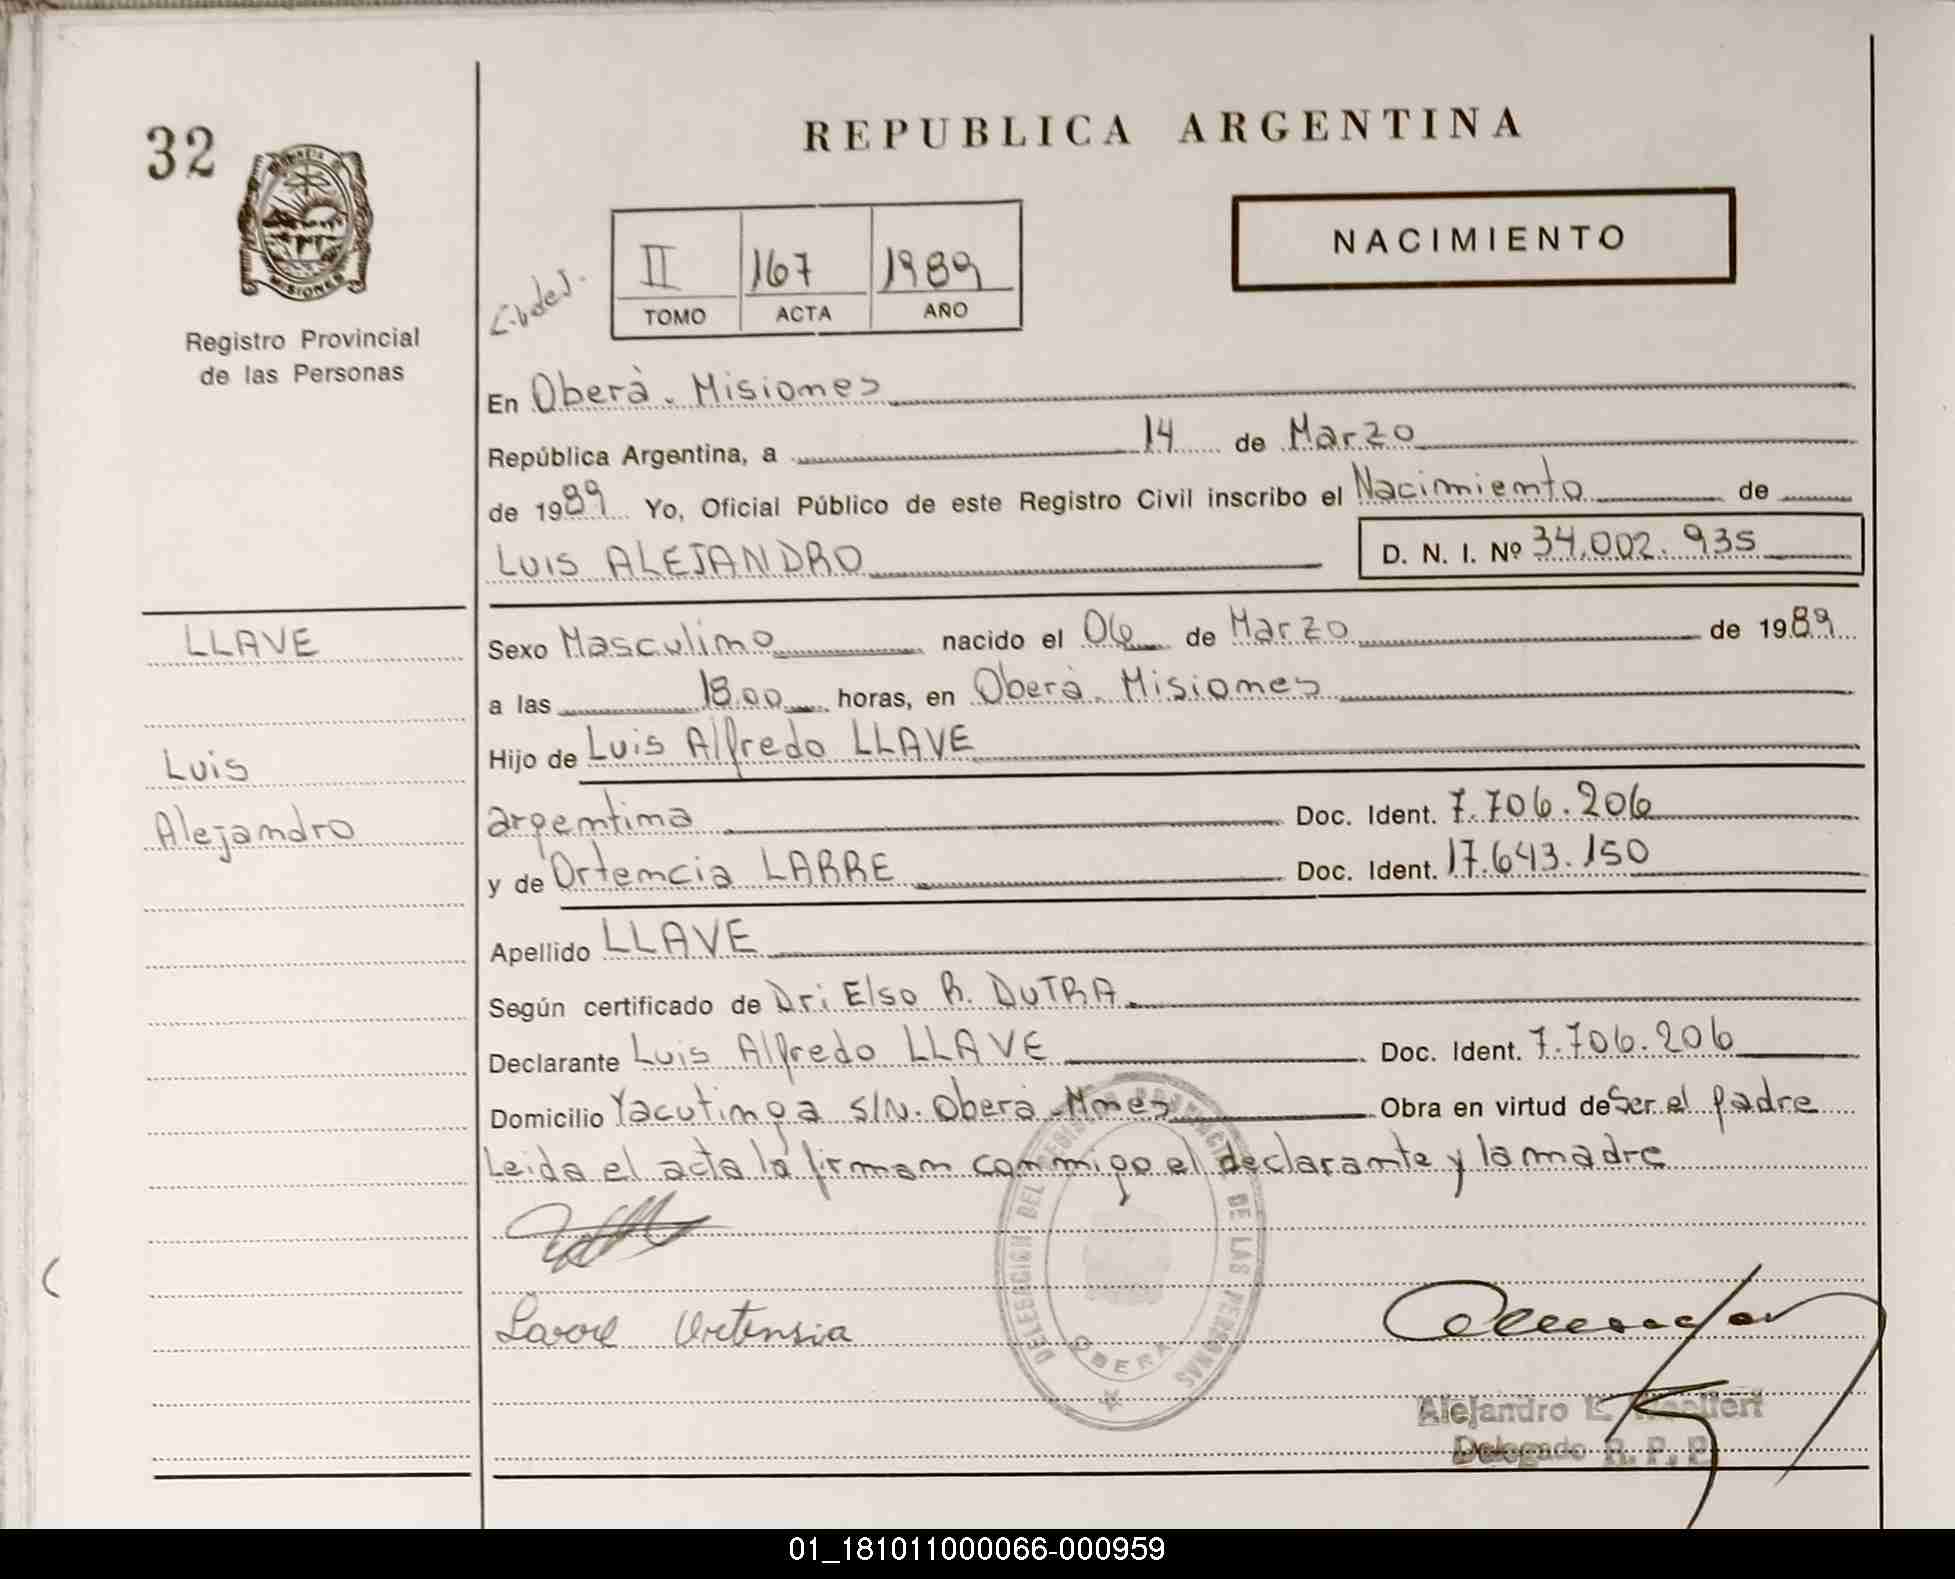 32
REPUBLICA ARGENTINA
NACIMIENTO
II 167 1989
TOMO ACTA AÑO
Registro Provincial
de las Personas
MISIONES
En Oberà. Misiones
República Argentina, a 14 de Marzo
de 1989 Yo, Oficial Público de este Registro Civil inscribo el Nacimiento de
LUIS ALEJANDRO D. N. I. Nº 34.002.935
LLAVE
Sexo Masculino nacido el 06 de Marzo de 1989
a las 18.00 horas, en Oberà. Misiones
Luis
Hijo de Luis Alfredo LLAVE
Alejandro
argentina Doc. Ident. 7.706.206
y de Ortencia LARRE Doc. Ident. 17.643.150
Apellido LLAVE
Según certificado de Dr: Elso R. DUTRA
Declarante Luis Alfredo LLAVE Doc. Ident. 7.706.206
Domicilio Yacutinga S/N. Oberà-Mnes Obra en virtud de Ser el padre
Leida el acta la firman conmigo el declarante y la madre
DELEGACION DEL REGISTRO PROVINCIAL DE LAS PERSONAS
OBERA
Larre Ortensia
Alejandro E.
Delegado R. P. P.
01_181011000066-000959